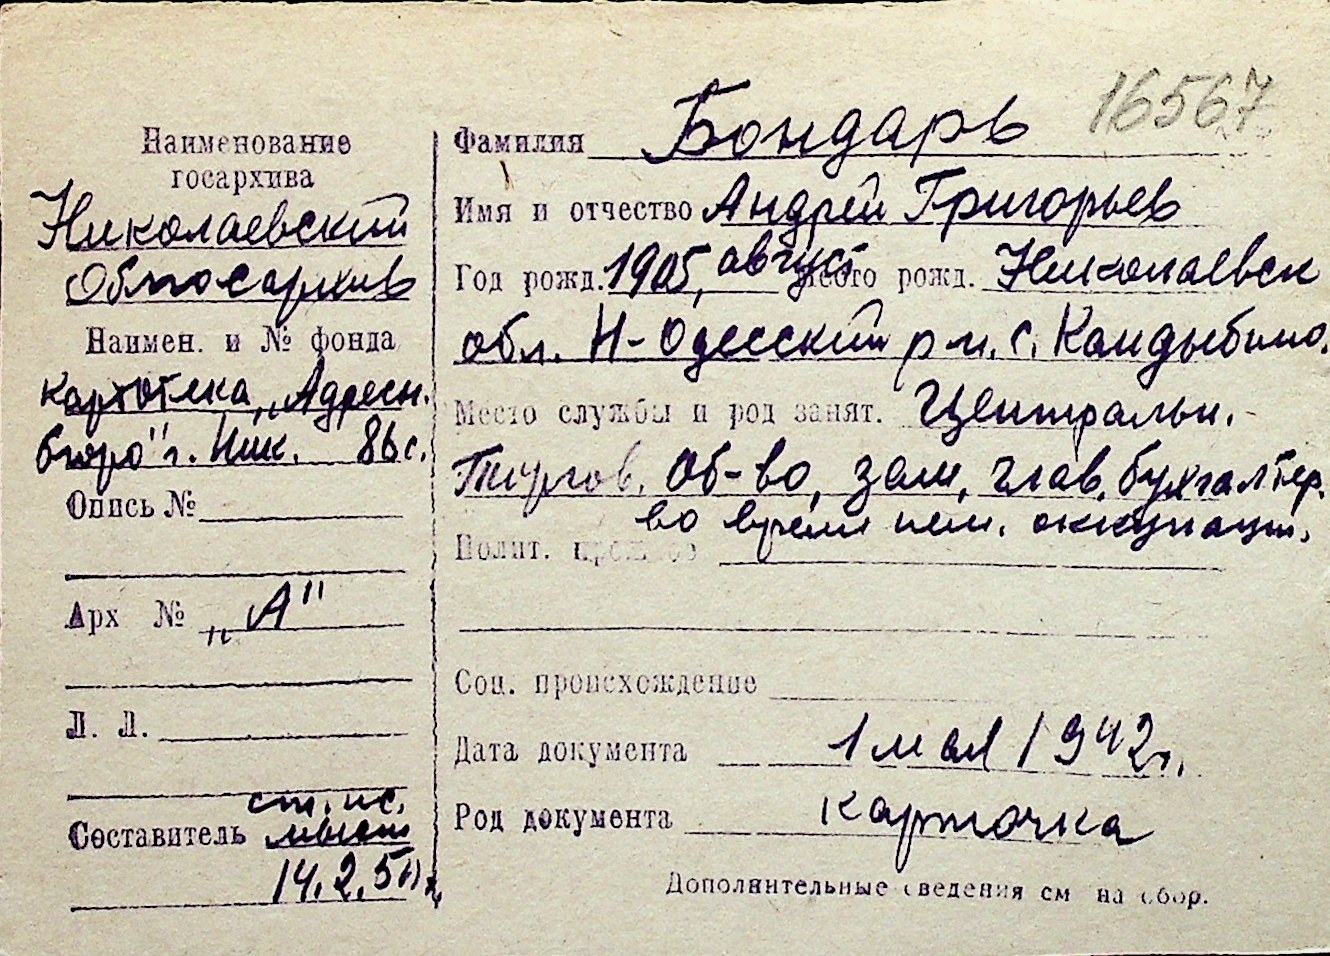 16567
Наименование
госархива
Николаевский
Облгосархив
Наимен. и № фонда
картотека „Адресн.
бюро" г. Ник. 86 с.
Опись №
Арх № „А"
Л. Л.
ст. ис.
Составитель
14.2.50 г.
Фамилия Бондарь
Имя и отчество Андрей Григорьев
Год рожд. 1905, август место рожд. Николаевск
обл. Н-Одесский р-н. с. Кандыбино.
Место службы и род занят. Центральн.
Торгов. Об-во, зам. глав. бухгалтер.
во время нем. оккупации.
Полит. прошлое
Соц. происхождение
Дата документа 1 мая 1942 г.
Род документа карточка
Дополнительные сведения см на обор.